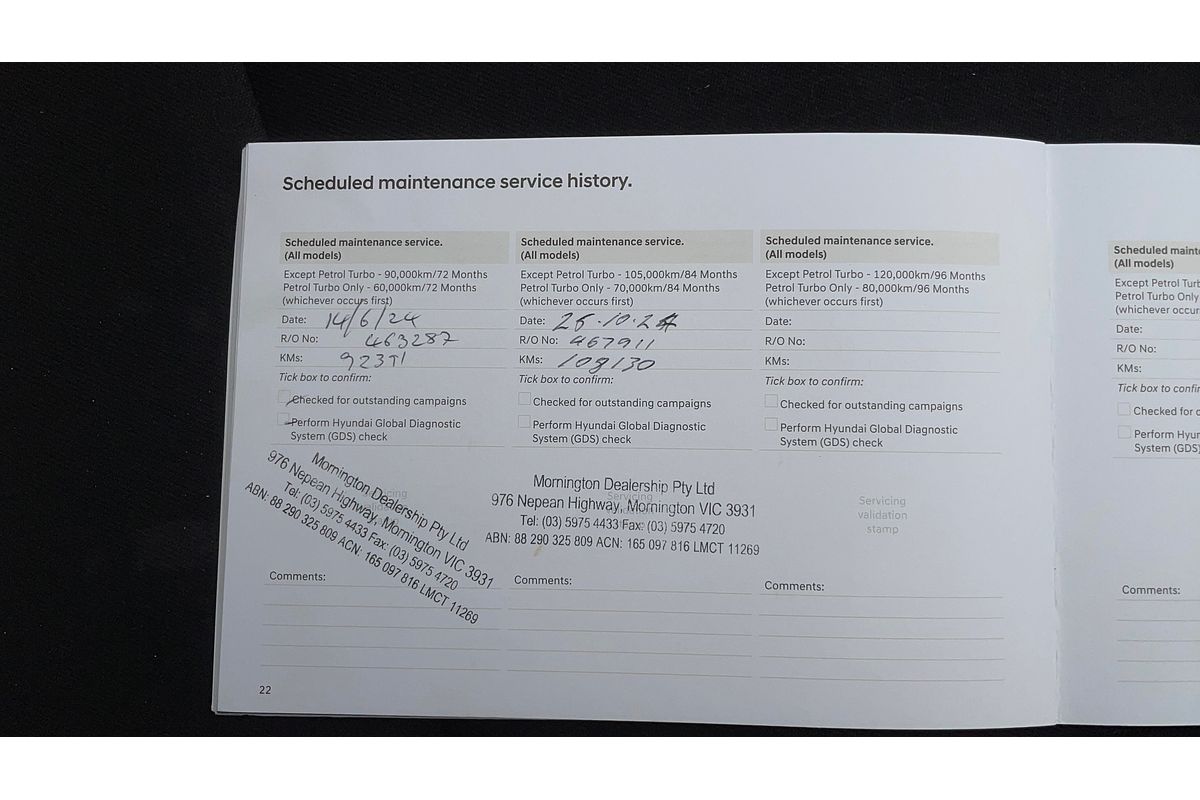 Scheduled maintenance service history.
Scheduled maintenance service.
(All models)
Except Petrol Turbo - 90,000km/72 Months
Petrol Turbo Only - 60,000km/72 Months
(whichever occurs first)
Date: 14/6/24
R/O No: 463287
KMs:
Tick box to confirm:
Checked for outstanding campaigns
Perform Hyundai Global Diagnostic
System (GDS) check
Mornington Dealership Pty Ltd
976 Nepean Highway, Mornington VIC 3931
Tel: (03) 5975 4433 Fax: (03) 5975 4720
ABN: 88 290 325 809 ACN: 165 097 816 LMCT 11269
Comments:
22
Scheduled maintenance service.
(All models)
Except Petrol Turbo - 105,000km/84 Months
Petrol Turbo Only - 70,000km/84 Months
(whichever occurs first)
Date:
R/O No: 467911
KMs: 108130
Tick box to confirm:
Checked for outstanding campaigns
Perform Hyundai Global Diagnostic
System (GDS) check
Mornington Dealership Pty Ltd
976 Nepean Highway, Mornington VIC 3931
Tel: (03) 5975 4433 Fax: (03) 5975 4720
ABN: 88 290 325 809 ACN: 165 097 816 LMCT 11269
Comments:
Scheduled maintenance service.
(All models)
Except Petrol Turbo - 120,000km/96 Months
Petrol Turbo Only - 80,000km/96 Months
(whichever occurs first)
Date:
R/O No:
KMs:
Tick box to confirm:
Checked for outstanding campaigns
Perform Hyundai Global Diagnostic
System (GDS) check
Servicing
validation
stamp
Comments:
Scheduled mainte
(All models)
Except Petrol Turb
Petrol Turbo Only
(whichever occur
Date:
R/O No:
KMs:
Tick box to confir
Checked for o
Perform Hyun
System (GDS)
Comments: